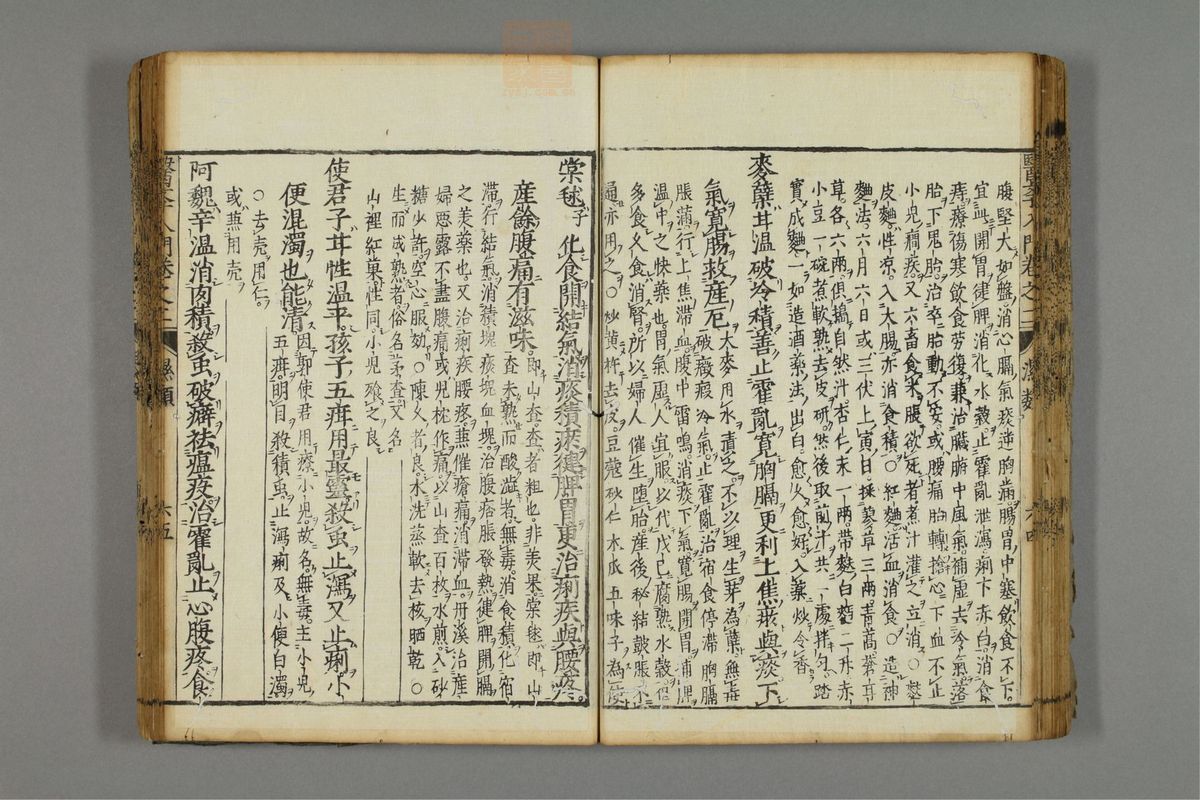 腹堅大如盤消心膈氣痰逆胸滿腸胃中塞飲食不下
宜血開胃健脾消化水穀止霍亂泄瀉痢下赤白消食
痔療傷寒飲食勞復兼治臟腑中風氣補虛去冷氣落
胎下鬼胎治卒胎動不安或腰痛胎轉搶心下血不止
小兒癎痰又六畜食米脹欲死者煮汁灌之立消○麩
皮麯性凉入大腸亦消食積○紅麯活血消食○造神
麯法六月六日或三伏上寅日採蓼草三兩青蒿蒼耳
草各六兩俱搗自然汁杏仁末一兩帶麩白麵二斤赤
小豆一碗煮軟熟去皮研然後取前汁共一處拌勻踏
實成麯一如造酒藥法出白愈久愈好入藥炒令香
麥蘖甘温破冷積善止霍亂寛胸膈更利上焦痰與淡下
氣寛腸救産厄大麥用水漬之不以理生芽為蘖無毒
破癥瘕冷氣止霍亂治宿食停滯胸膈
脹滿行上焦滯血腹中雷鳴消痰下氣寛腸開胃補脾
温中之快藥也胃氣虛人宜服以代戊己腐熟水穀但
多食久食消腎所以婦人催生墮胎産後秘結皷脹不
通亦用之○炒黄杵去皮豆蔻砂仁木瓜五味子為使
棠毬子化食開結氣消痰積瘀健脾胃更治痢疾與腰疼
産餘腹痛有滋味即山査査者粗也非美果棠毬即山
査未熟而酸澁者無毒消食積化宿
滯行結氣消積塊痰塊血塊治腹痞脹發熱健脾開膈
之美藥也又治痢疾腰疼兼催瘡痛消滯血丹溪治産
婦惡露不盡腹痛或兒枕作痛以山査百枚水煎入砂
糖少許空心服効○陳久者良水洗蒸軟去核晒乾○
生而成熟者俗名茅査又名
山裡紅菓性同小兒飱之良
使君子甘性温平孩子五疳用最靈殺虫止瀉又止痢小
便混濁也能清因郭使君用療小兒故名無毒主小兒
五疳明目殺積虫止瀉痢及小便白濁
○去売用仁
或兼用売
阿魏辛温消肉積殺虫破癖祛瘟疫治霍亂止心腹疼食
醫學入門卷之二
濕類
六四
六五